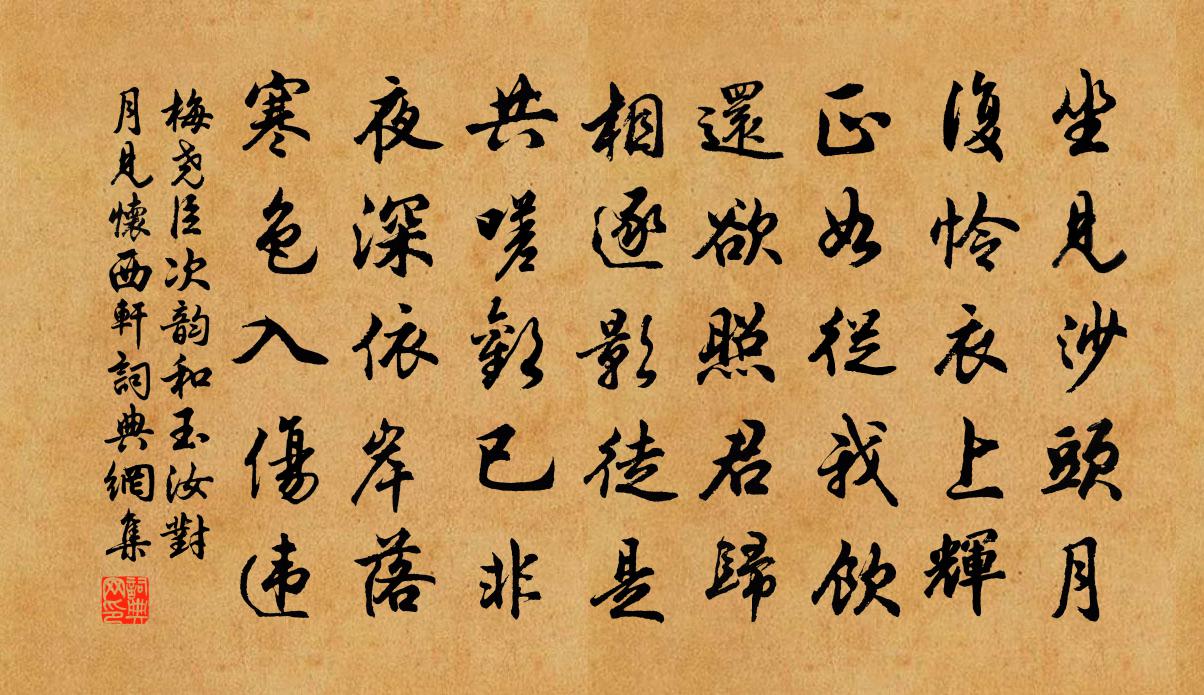 坐見沙頭月
復怜衣上輝
正如從我飲
還欲照君歸
相逐影徒是
共嗟歡已非
夜深依岸落
寒色入傷违
梅尧臣次韵和玉汝對
月見懷西軒詞典網集
詞典
网印